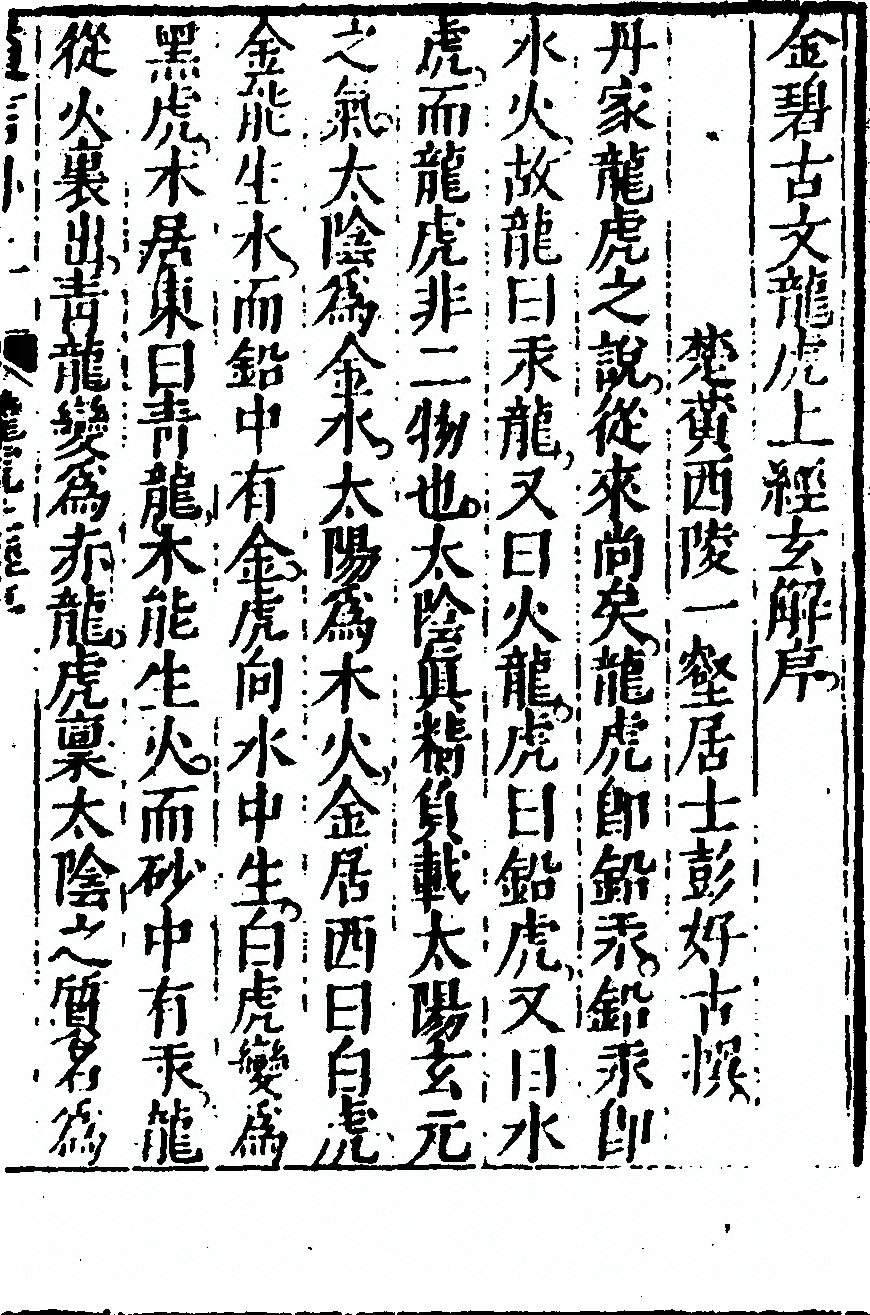 金碧古文龍虎上經玄解序
楚黃西陵一壑居士彭好古撰
丹家龍虎之說從來尚矣龍虎卽鉛汞鉛汞卽
水火故龍曰汞龍又曰火龍虎曰鉛虎又曰水
虎而龍虎非二物也太陰真精負載太陽玄元
之氣太陰爲金水太陽爲木火金居西曰白虎
金能生水而鉛中有金虎向水中生白虎變爲
黑虎木居東曰青龍木能生火而砂中有汞龍
從火裏出青龍變爲赤龍虎稟太陰之質名爲